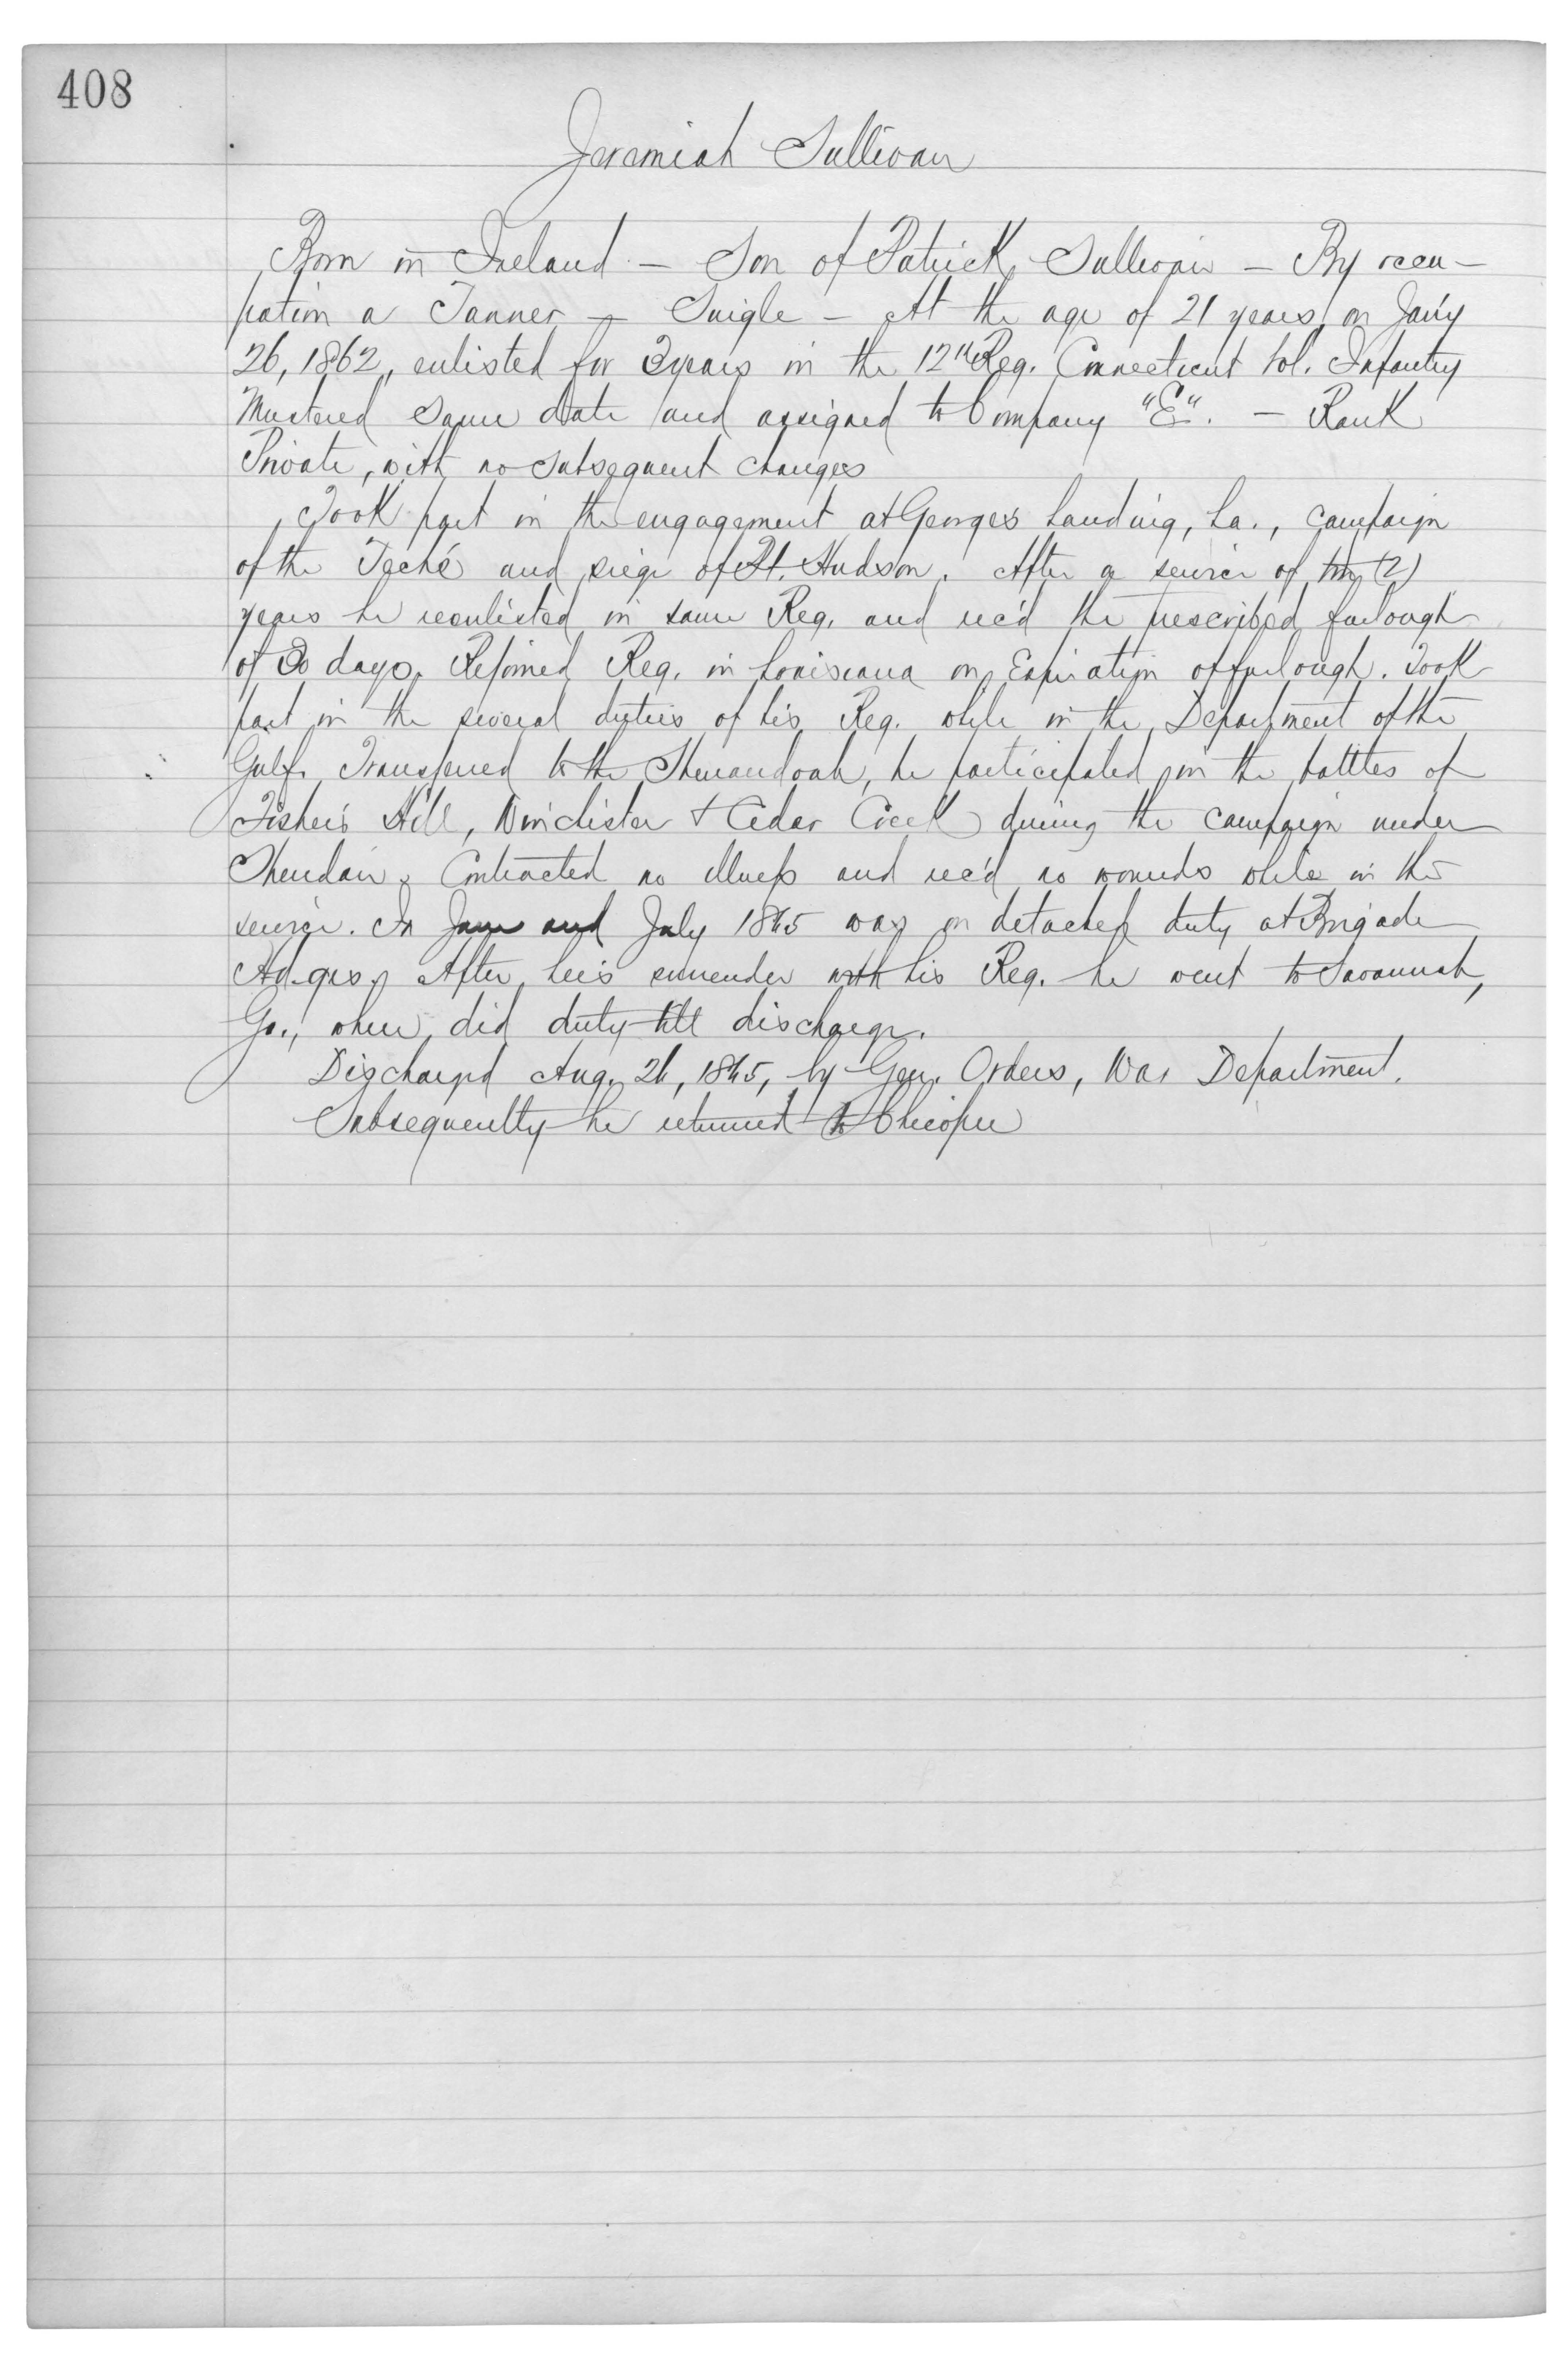 408
Jeremiah Sullivan
Born in Ireland - Son of Patrick Sullivan - By occu-
pation a Tanner - Single - At the age of 21 years, on Jan'y
26, 1862, enlisted for 3 years in the 12th Reg. Connecticut Vol. Infantry
Mustered same date and assigned to Company "E". - Rank
Private, with no subsequent changes
Took part in the engagement at George's Landing, La., campaign
of the Teché and siege of Pt. Hudson. After a service of two (2)
years he reenlisted in same Reg. and rec'd the prescribed furlough
of 30 days. Rejoined Reg. in Louisiana on Expiration of furlough. Took
part in the several duties of his Reg. while in the Department of the
Gulf. Transferred to the Shenandoah, he participated in the battles of
Fisher's Hill, Winchester & Cedar Creek during the campaign under
Sheridan. Contracted no illness and rec'd no wounds while in the
service. In June and July 1865 was on detached duty at Brigade
Hd-qrs. After Lee's surrender with his Reg. he went to Savannah,
Ga., where did duty till discharge.
Discharged Aug. 26, 1865, by Gen. Orders, War Department.
Subsequently he returned to Chicopee